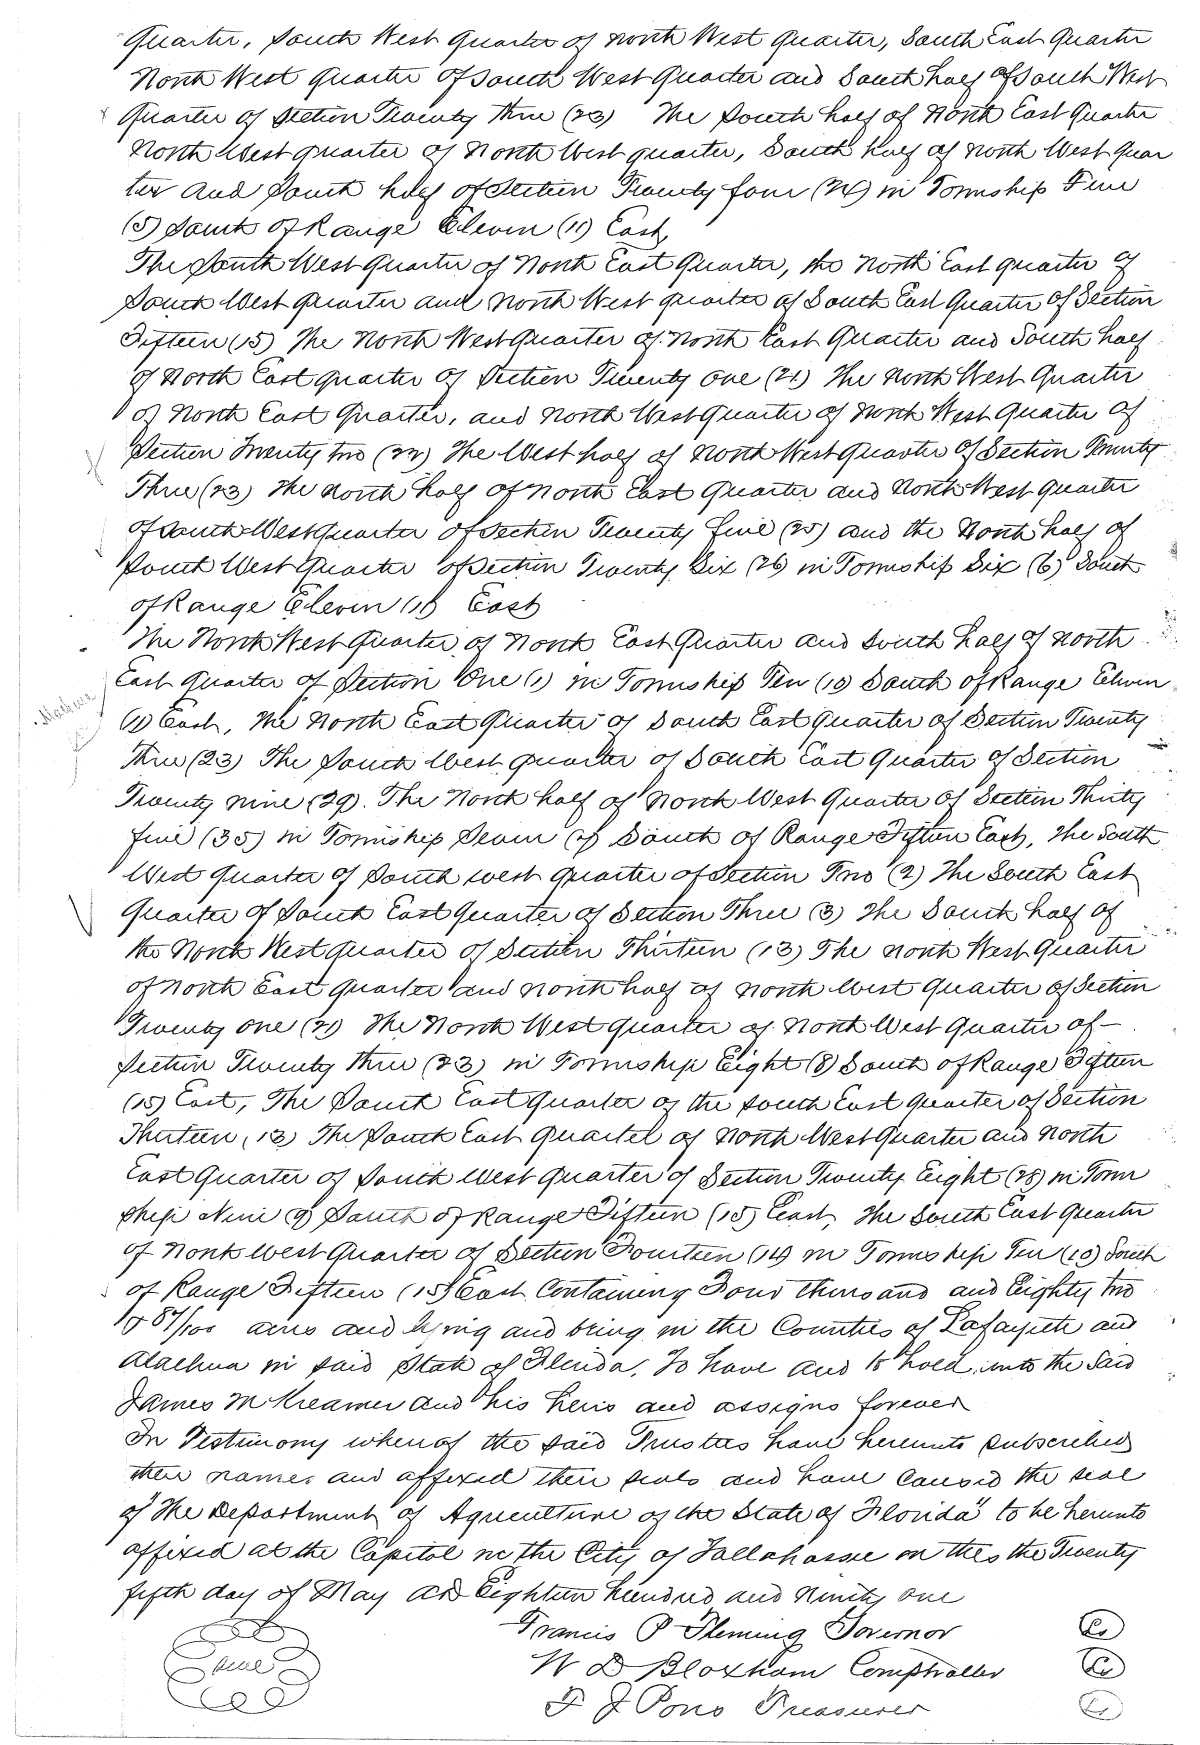 Quarter, South West Quarter of North West Quarter, South East Quarter
North West Quarter of South West Quarter and South half of South West
Quarter of Section Twenty three (23) The South half of North East Quarter
North West quarter of North West quarter, South half of North West Quar
ter and South half of Section Twenty four (24) in Township Five
(5) South of Range Eleven (11) East,
The South West Quarter of North East Quarter, the North East quarter of
South West Quarter and North West quarter of South East Quarter of Section
Fifteen (15) The North West Quarter of North East Quarter and South half
of North East quarter of Section Twenty one (21) The North West Quarter
of North East Quarter, and North West Quarter of North West Quarter of
Section Twenty two (22) The West half of North West Quarter of Section Twenty
Three (23) The North half of North East Quarter and North West Quarter
of South West Quarter of Section Twenty five (25) and the North half of
South West Quarter of Section Twenty Six (26) in Township Six (6) South
of Range Eleven (11) East
The North West Quarter of North East Quarter and South half of North
East Quarter of Section One (1) in Township Ten (10) South of Range Eleven
(11) East, The North East Quarter of South East Quarter of Section Twenty
three (23) The South West quarter of South East Quarter of Section
Twenty nine (29). The North half of North West Quarter of Section Thirty
five (35) in Township Seven (7) South of Range Fifteen East, The South
West Quarter of South west quarter of Section Two (2) The South East
Quarter of South East Quarter of Section Three (3) The South half of
the North West Quarter of Section Thirteen (13) The North West Quarter
of North East Quarter and North half of North West Quarter of Section
Twenty one (21) The North West Quarter of North West Quarter of
Section Twenty three (23) in Township Eight (8) South of Range Fifteen
(15) East, The South East Quarter of the South East Quarter of Section
Thirteen (13) The South East Quarter of North West Quarter and North
East Quarter of South West Quarter of Section Twenty Eight (28) in Town
ship Nine (9) South of Range Fifteen (15) East, The South East Quarter
of North West Quarter of Section Fourteen (14) in Township Ten (10) South
of Range Fifteen (15) East Containing Four thousand and Eighty two
& 87/100 acres and lying and being in the Counties of Lafayette and
Alachua in said State of Florida. To have and to hold unto the said
James M Kreamer and his heirs and assigns forever
In Testimony whereof the said Trustees have hereunto subscribed
their names and affixed their seals and have caused the seal
of "The Department of Agriculture of the State of Florida" to be hereunto
affixed at the Capitol in the City of Tallahassee on this the Twenty
fifth day of May AD Eighteen hundred and Ninety one
Francis P Fleming Governor
seal W D Bloxham Comptroller
F J Pons Treasurer